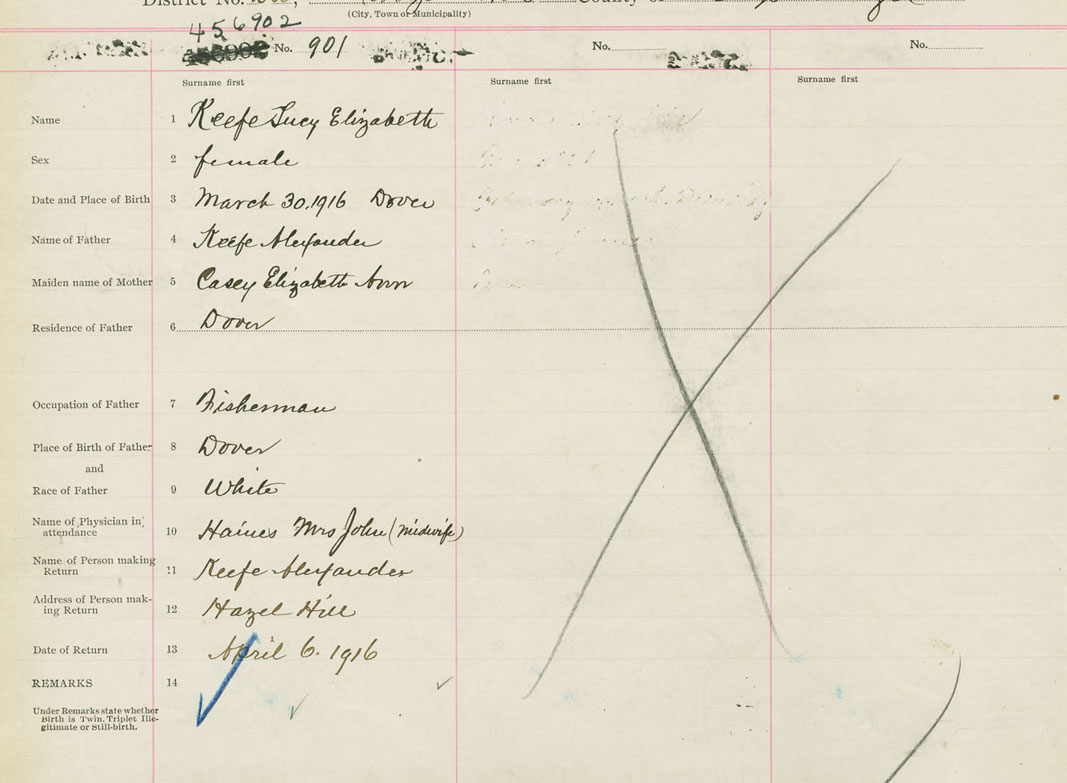 District No.
County of
(City, Town or Municipality)
456902
No. 901 No. No.
Surname first Surname first Surname first
Name 1 Keefe Lucy Elizabeth
Sex 2 female
Date and Place of Birth 3 March 30.1916 Dover
Name of Father 4 Keefe Alexander
Maiden name of Mother 5 Casey Elizabeth Ann
Residence of Father 6 Dover
Occupation of Father 7 Fisherman
Place of Birth of Father 8 Dover
and
Race of Father 9 White
Name of Physician in
attendance 10 Haines Mrs John (Midwife)
Name of Person making
Return 11 Keefe Alexander
Address of Person mak-
ing Return 12 Hazel Hill
Date of Return 13 April 6. 1916
REMARKS 14
Under Remarks state whether
Birth is Twin, Triplet Ille-
gitimate or Still-birth.